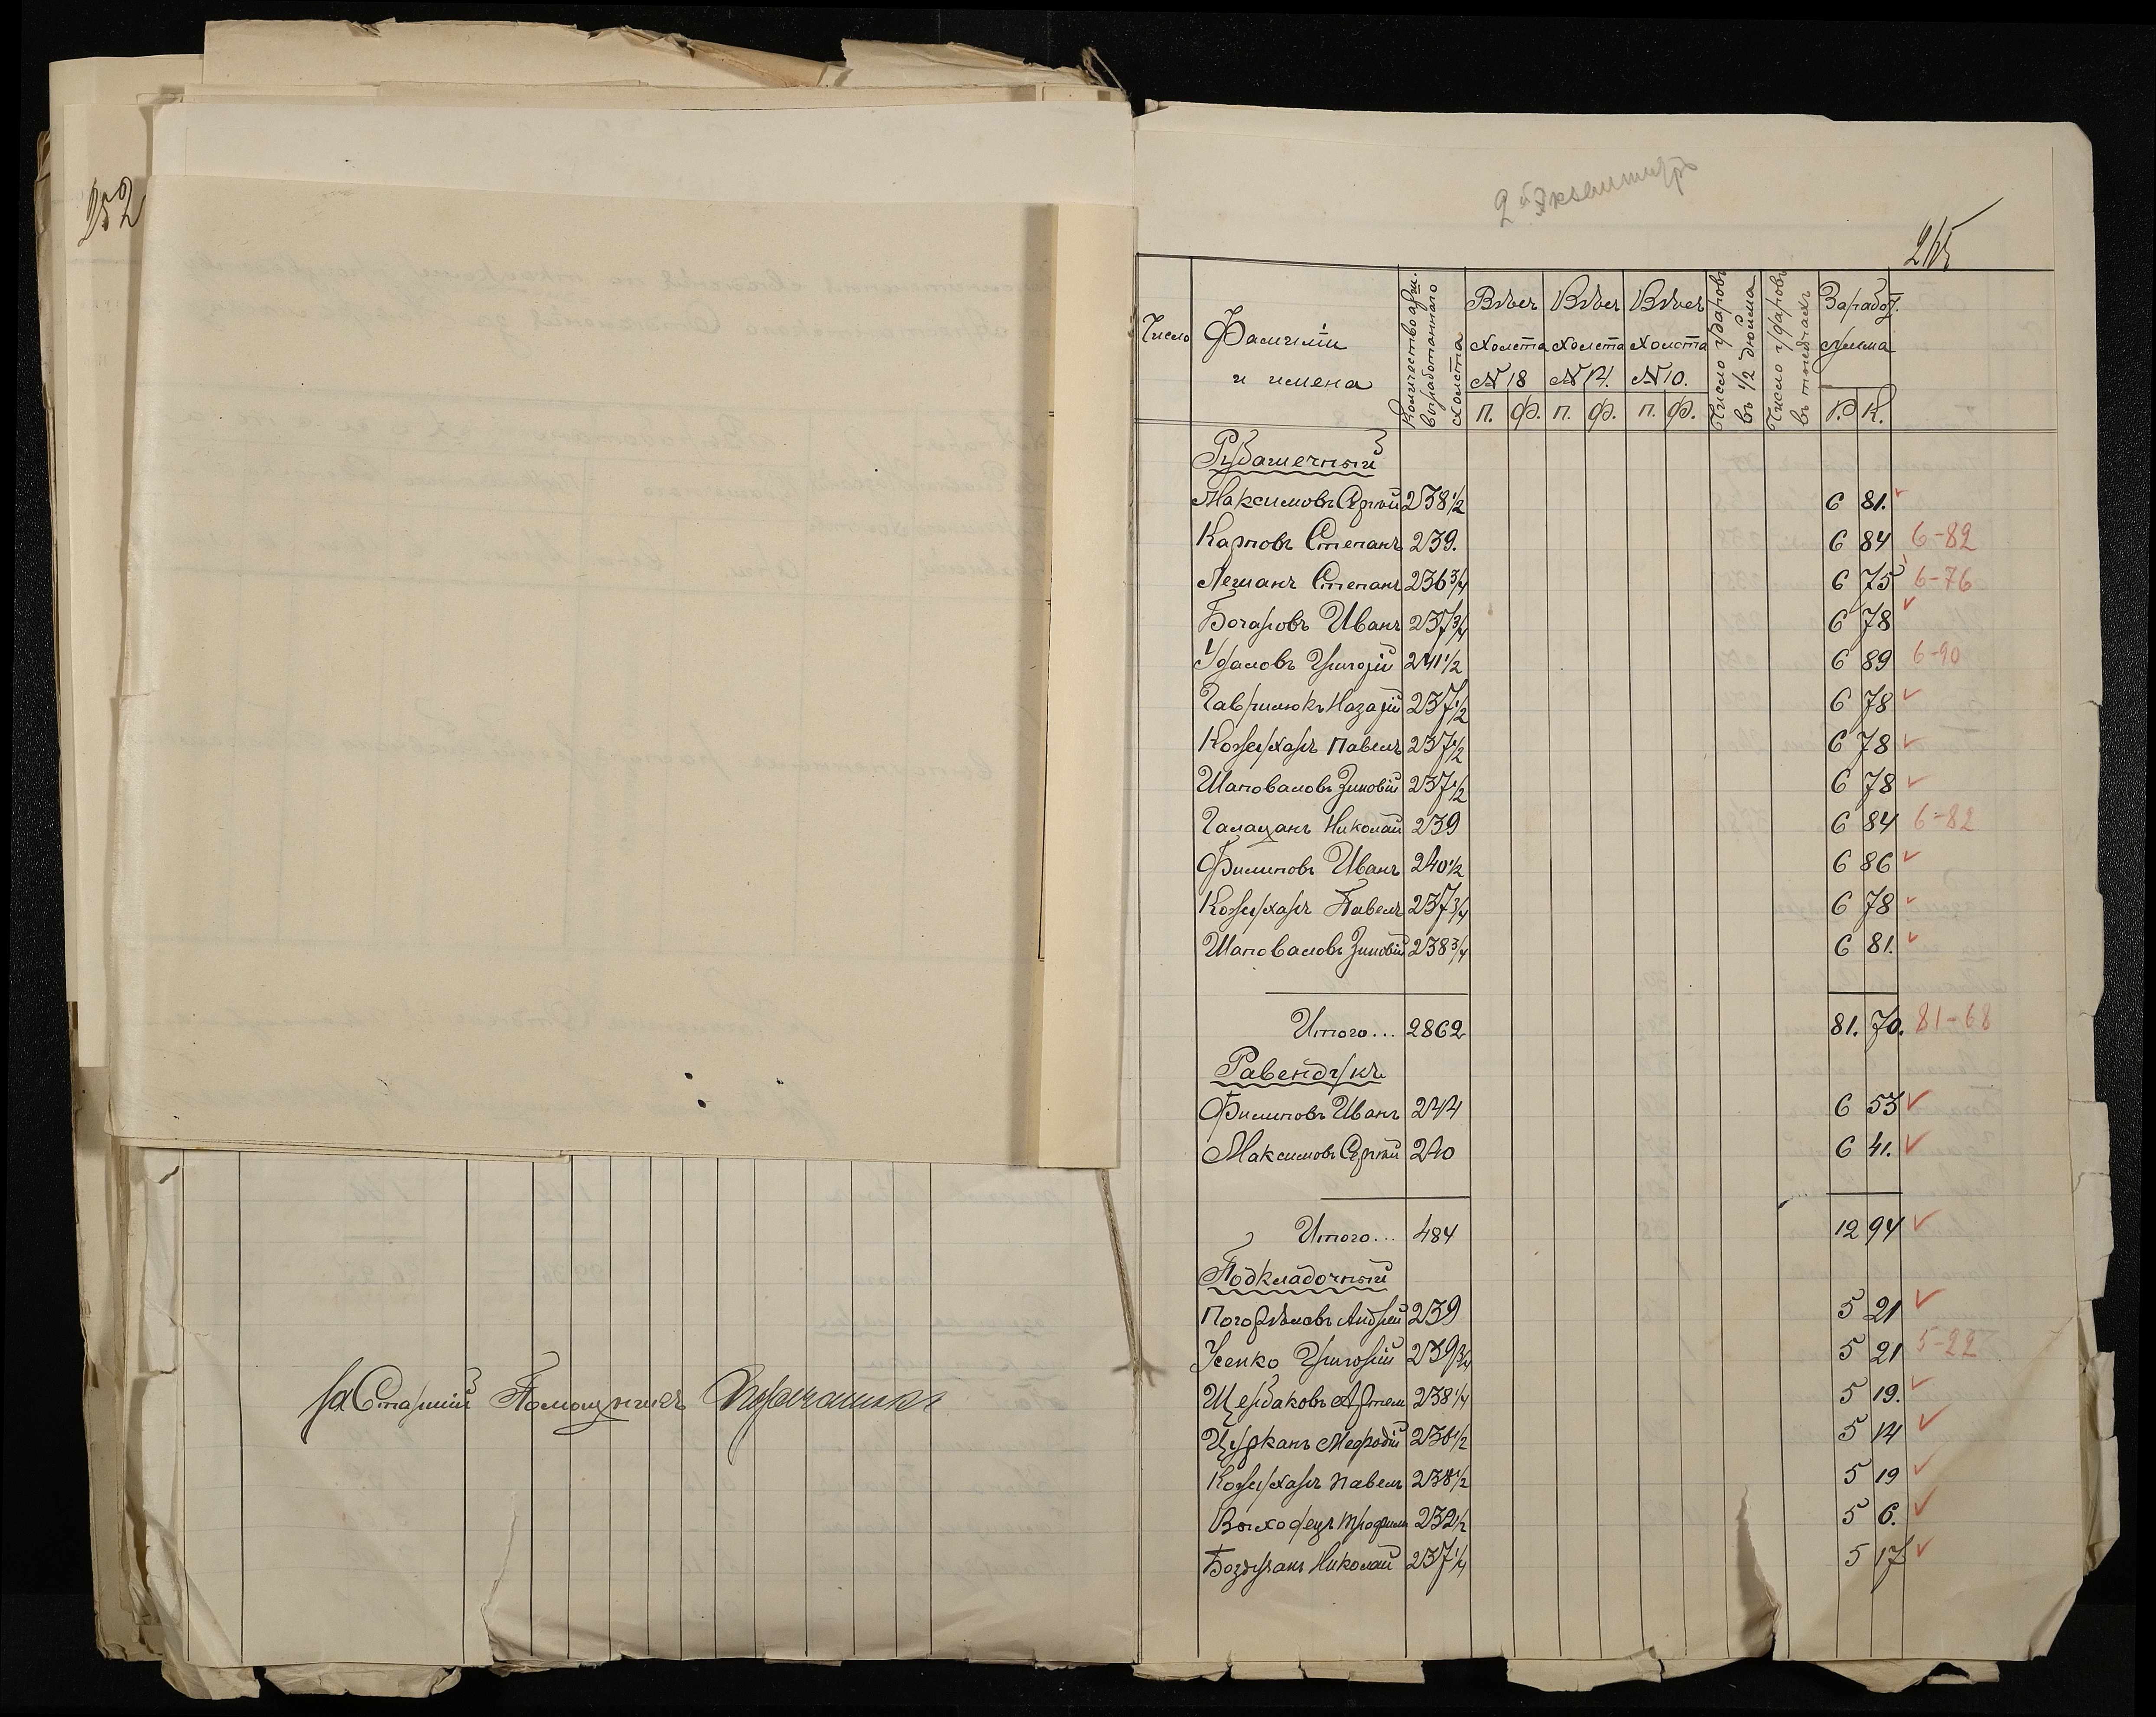 252
За Старшій Помощникъ
2й Экземпляръ
215
Число
Фамиліи
и имена
Количество арш.
выработаннаго
холста
Вѣсъ
холста
№ 18
п. ф.
Вѣсъ
холста
№ 14.
п. ф.
Вѣсъ
холста
№ 10.
п. ф.
Число ударовъ
въ 1/2 дюйма
Число ударовъ
въ
Заработ.
сумма
Р. К.
Рубашечный
Максимовъ Сергѣй 238 1/2 6 81.
Карповъ Степанъ 239. 6 84 6-82
Лешанъ Степанъ 236 3/4 6 75 6-76
Бочаровъ Иванъ 237 3/4 6 78
Удаловъ Григорій 241 1/2 6 89 6-90
Гаврилюкъ Назарій 237 1/2 6 78
Кожухарь Павелъ 237 1/2 6 78
Шаповаловъ Зиновій 237 1/2 6 78
Галацанъ Николай 239 6 84 6-82
Филиповъ Иванъ 240 1/2 6 86
Кожухарь Павелъ 237 3/4 6 78
Шаповаловъ Зиновій 238 3/4 6 81.
Итого... 2862 81. 70. 81-68
Равендукъ
Филиповъ Иванъ 244 6 53
Максимовъ Сергѣй 240 6 41.
Итого... 484 12 94
Подкладочный
Погорѣловъ Андрей 239 5 21
Усенко Григорій 239 3/4 5 21 5-22
Щербаковъ Артем 238 1/4 5 19.
Цурканъ Мефодій 236 1/2 5 14
Кожухарь Павелъ 238 1/2 5 19
Выходецъ Трофимъ 232 1/2 5 6.
Боздуганъ Николай 237 1/4 5 17